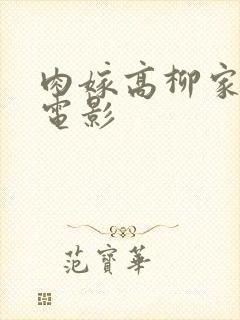 肉嫁高柳家
電影
范寶華